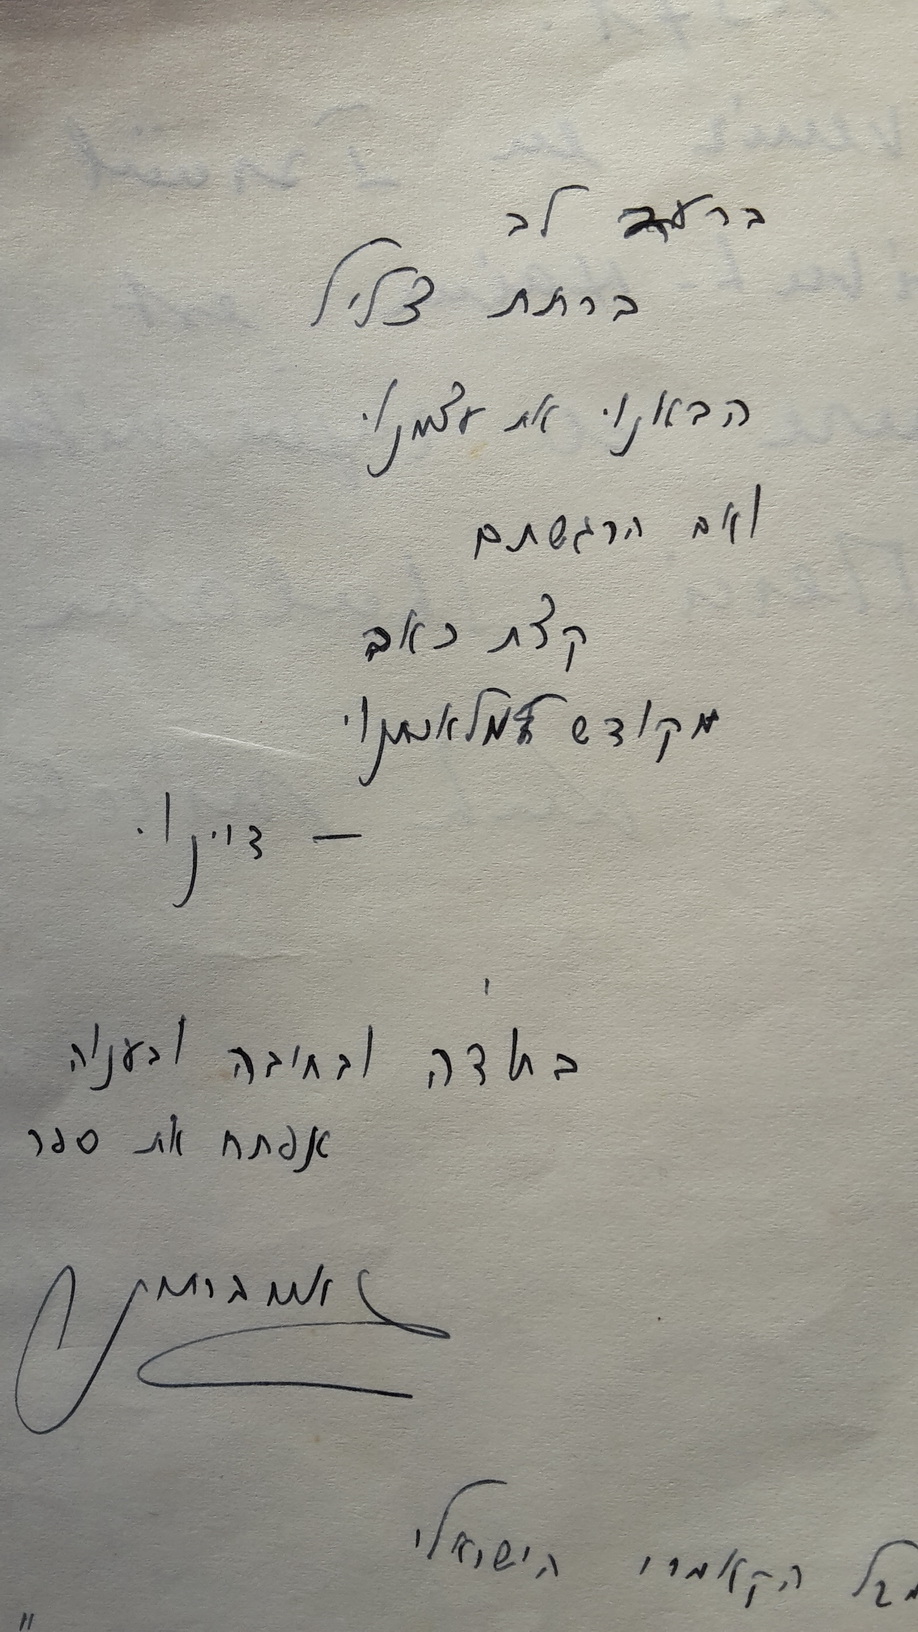 ברעד לב
ברתת צליל
הבאנו את עצמנו
ואם הרגשתם
קצת כאב
מקודש למלאכתנו
— דיינו.
בתודה ובחיבה ובענוה
אפתח את ספר
הקאמרי הישראלי